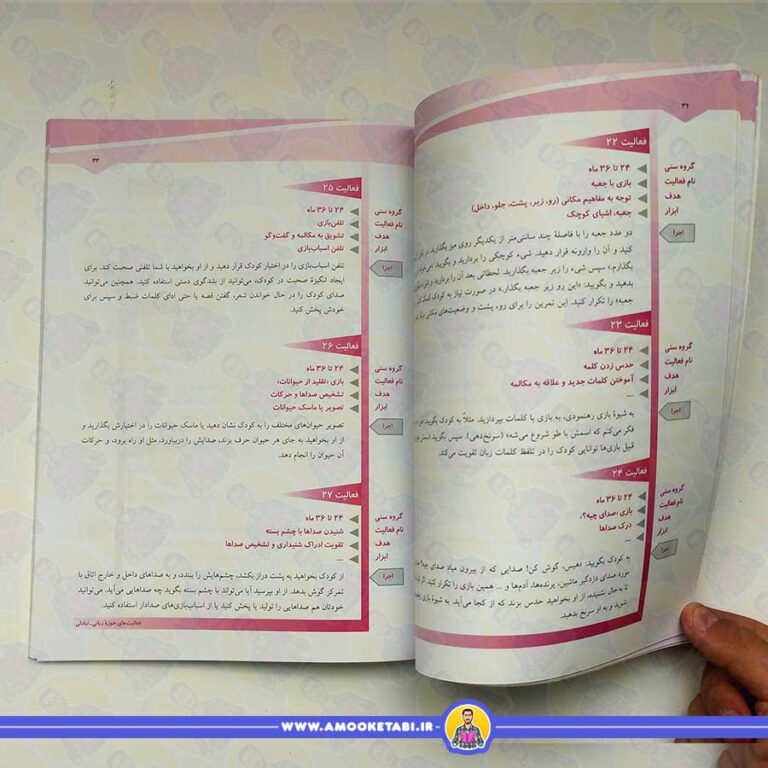 ۳۲
فعالیت ۲۲
گروه سنی ۲۴ تا ۳۶ ماه
نام فعالیت بازی با جعبه
هدف توجه به مفاهیم مکانی (رو، زیر، پشت، جلو، داخل)
ابزار جعبه، اشیای کوچک
اجرا
دو عدد جعبه را با فاصلهٔ چند سانتی‌متر از یکدیگر روی میز بگذارید.
کنید و آن را وارونه قرار دهید. شیء کوچکی را بردارید و بگویید:
بگذارم.» سپس شیء را زیر جعبه بگذارید. لحظاتی بعد آن را بردارید و
بدهید و بگویید: «این رو زیر جعبه بگذار.» در صورت نیاز به کودک کمک
جعبه» را تکرار کنید. این تمرین را برای رو، پشت و وضعیت‌های مکانی دیگر
فعالیت ۲۳
گروه سنی ۲۴ تا ۳۶ ماه
نام فعالیت حدس زدن کلمه
هدف آموختن کلمات جدید و علاقه به مکالمه
ابزار ...
اجرا
به شیوهٔ بازی رهنمودی، به بازی با کلمات بپردازید. مثلاً به کودک بگویید
فکر می‌کنم که اسمش با طو شروع می‌شه» (سرنخ‌دهی). سپس بگویید
قبیل بازی‌ها توانایی کودک را در تلفظ کلمات زبان تقویت می‌کند.
فعالیت ۲۴
گروه سنی ۲۴ تا ۳۶ ماه
نام فعالیت بازی «صدای چیه؟»
هدف درک صداها
ابزار ...
اجرا
به کودک بگویید: «هیس، گوش کن! صدایی که از بیرون میاد صدای
مورد صدای دزدگیر ماشین، پرنده‌ها، آدم‌ها و ... همین بازی را تکرار کنید.
تا به‌حال نشنیده، از او بخواهید حدس بزند که از کجا می‌آید. به شیوهٔ بازی
شوید و به او سرنخ بدهید.
۳۳
فعالیت ۲۵
گروه سنی ۲۴ تا ۳۶ ماه
نام فعالیت تلفن‌بازی
هدف تشویق به مکالمه و گفت‌وگو
ابزار تلفن اسباب‌بازی
اجرا
تلفن اسباب‌بازی را در اختیار کودک قرار دهید و از او بخواهید با شما تلفنی صحبت کند. برای
ایجاد انگیزهٔ صحبت در کودک، می‌توانید از بلندگوی دستی استفاده کنید. همچنین می‌توانید
صدای کودک را در حال خواندن شعر، گفتن قصه یا حتی ادای کلمات ضبط و سپس برای
خودش پخش کنید.
فعالیت ۲۶
گروه سنی ۲۴ تا ۳۶ ماه
نام فعالیت بازی «تقلید از حیوانات»
هدف تشخیص صداها و حرکات
ابزار تصویر یا ماسک حیوانات
اجرا
تصویر حیوان‌های مختلف را به کودک نشان دهید یا ماسک حیوانات را در اختیارش بگذارید و
از او بخواهید به جای هر حیوان حرف بزند، صدایش را دربیاورد، مثل او راه برود، و حرکات
آن حیوان را انجام دهد.
فعالیت ۲۷
گروه سنی ۲۴ تا ۳۶ ماه
نام فعالیت شنیدن صداها با چشم بسته
هدف تقویت ادراک شنیداری و تشخیص صداها
ابزار ...
اجرا
از کودک بخواهید به پشت دراز بکشد، چشم‌هایش را ببندد، و به صداهای داخل و خارج اتاق با
تمرکز گوش بدهد. از او بپرسید آیا می‌تواند با چشم بسته بگوید چه صداهایی می‌آید. می‌توانید
خودتان هم صداهایی را تولید یا پخش کنید یا از اسباب‌بازی‌های صدادار استفاده کنید.
فعالیت‌های حوزهٔ زبانی ـ تبادلی
WWW.AMOOKETABI.IR